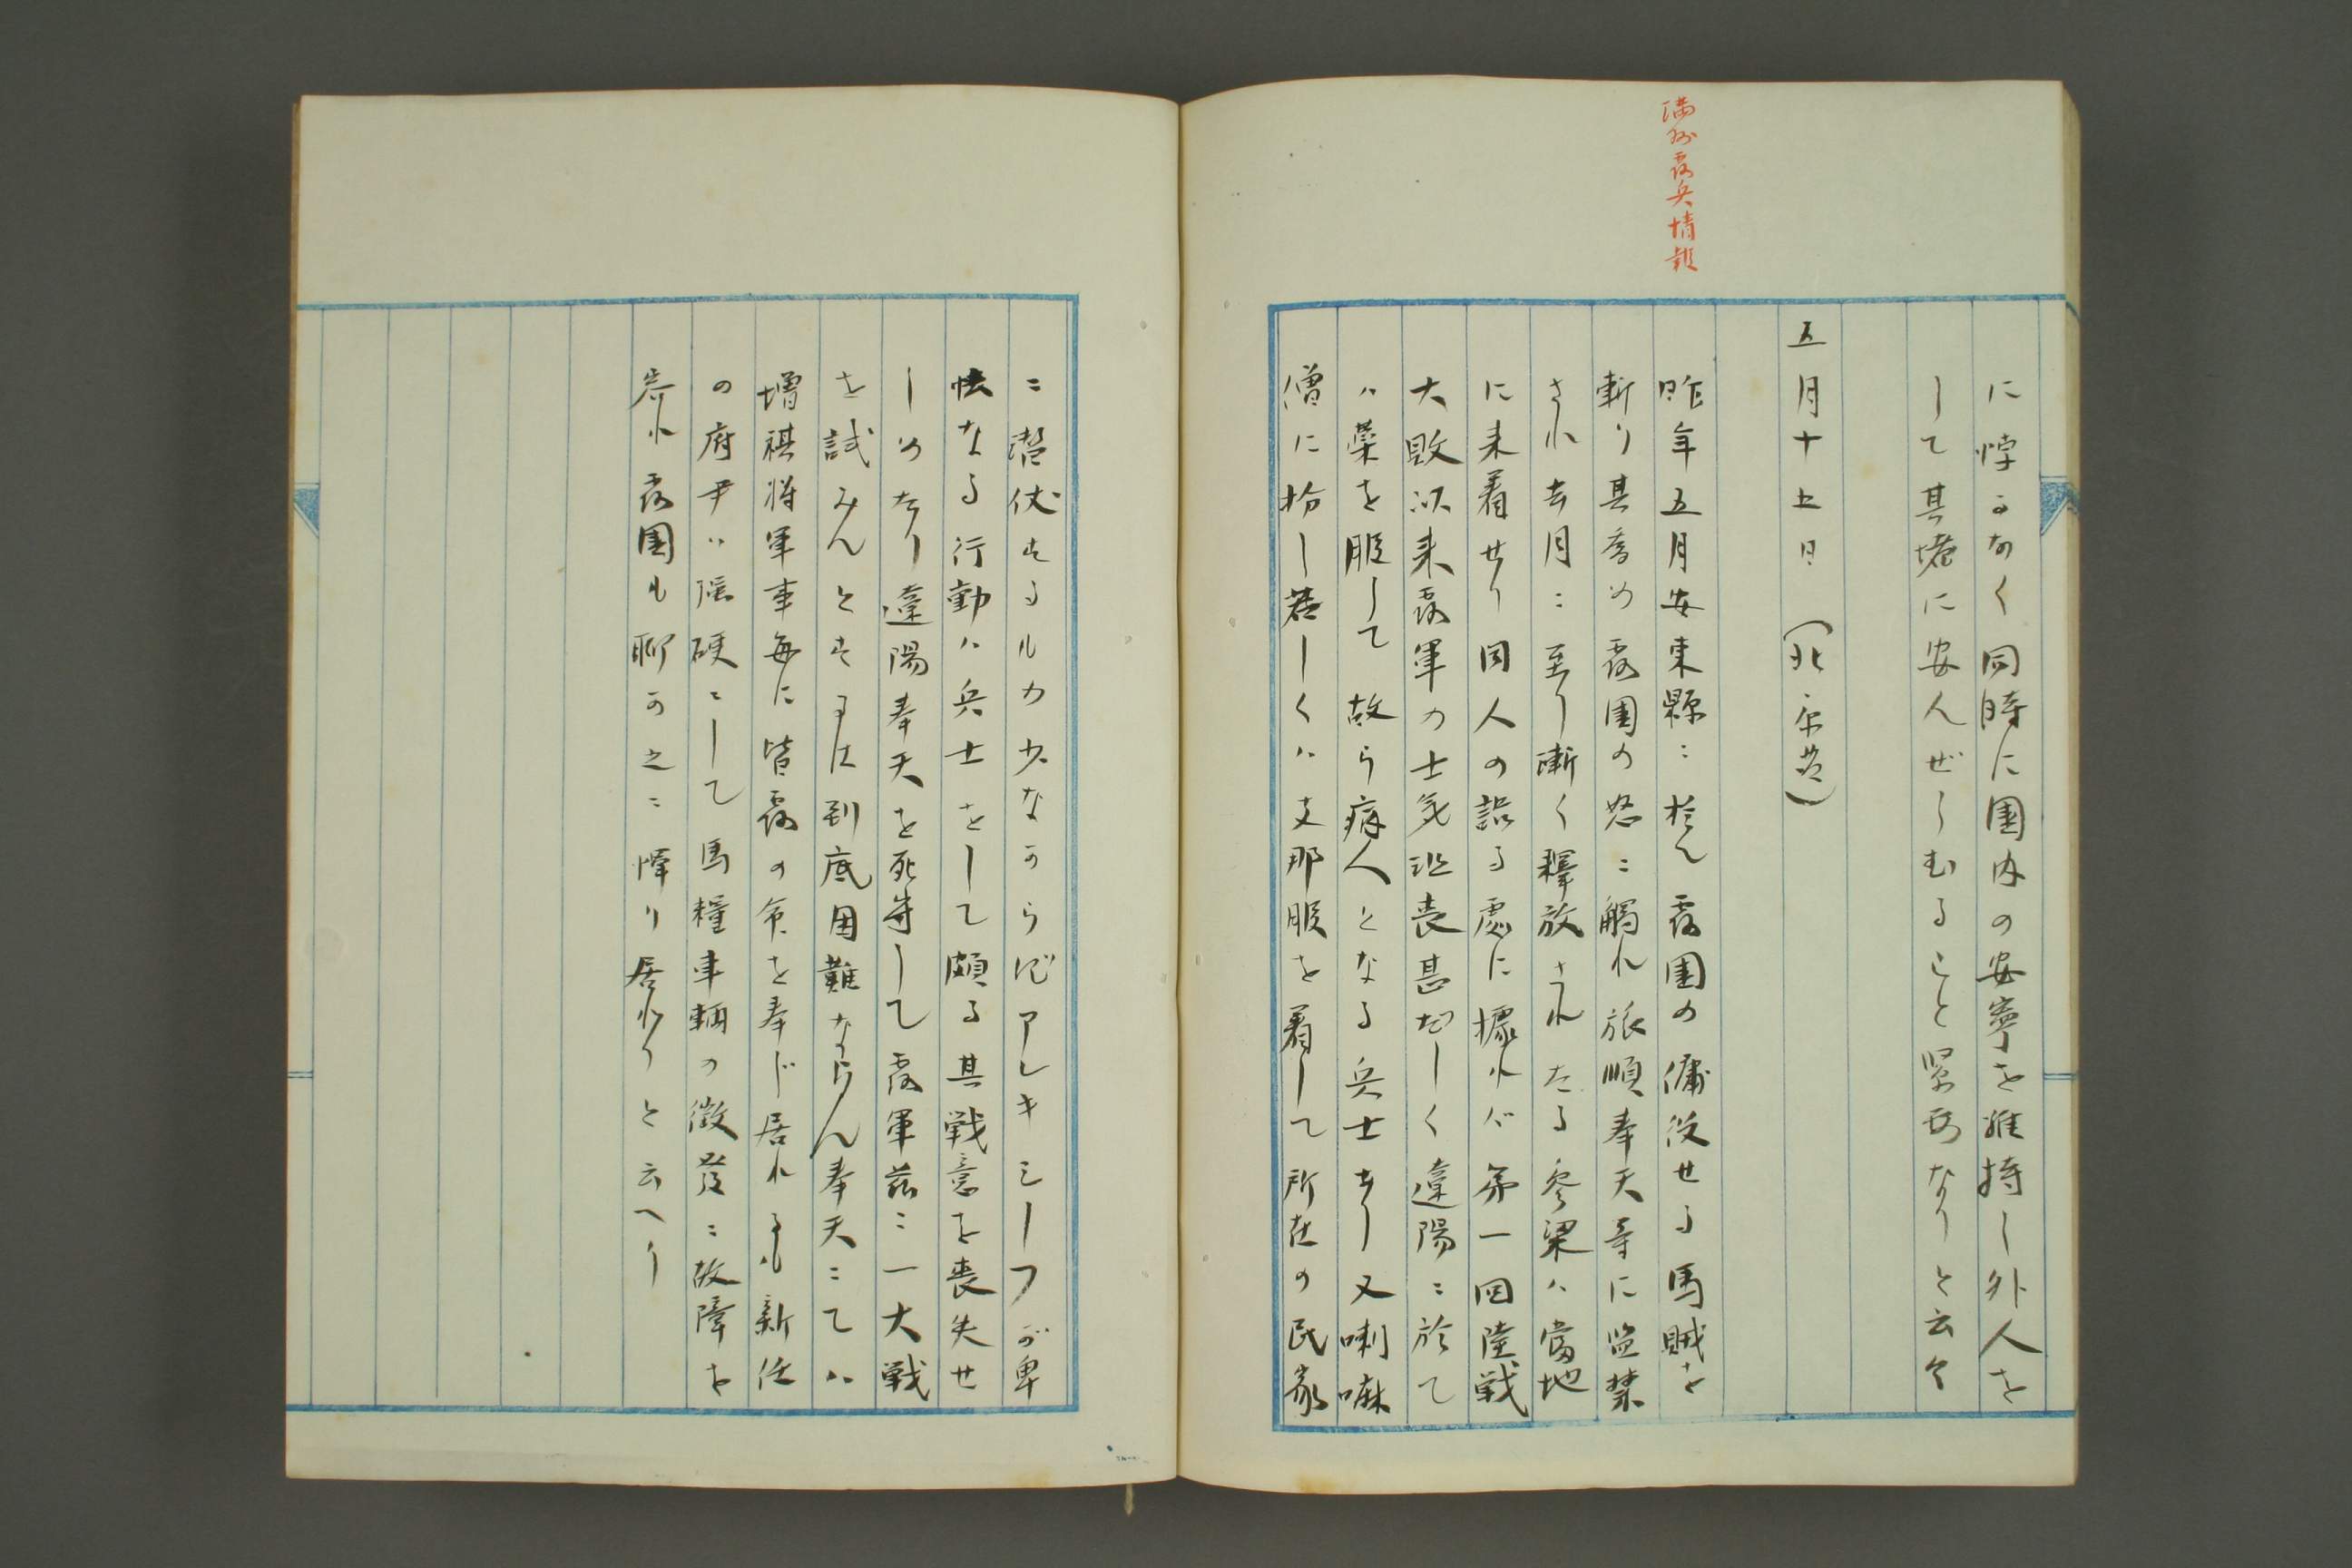 満州露兵情報
に悖るなく同時に国内の安寧を維持し外人を
して其堵に安んぜしむること緊要なりと云々
五月十五日（北京発）
昨年五月安東縣ニ於て露国の傭役せる馬賊を
斬り其為め露国の怒ニ觸れ旅順奉天等に監禁
され去月ニ至り漸く釋放されたる参梁ハ當地
に来着せり同人の語る處に據れバ第一回陸戦
大敗以来露軍の士気沮喪甚だしく遼陽ニ於て
ハ薬を服して故ら病人となる兵士あり又喇嘛
僧に扮し若しくハ支那服を着して所在の民家
ニ潜伏するもの少なからずアレキシーフが卑
怯なる行動ハ兵士をして頗る其戦意を喪失せ
しめたり遼陽奉天を死守して露軍茲ニ一大戦
を試みんとするは到底困難ならん奉天ニてハ
増祺将軍事毎に皆露の命を奉じ居れるも新任
の府尹ハ強硬ニして馬糧車輌の徴発ニ故障を
唱れ露国も聊か之ニ憚り居れりと云へり